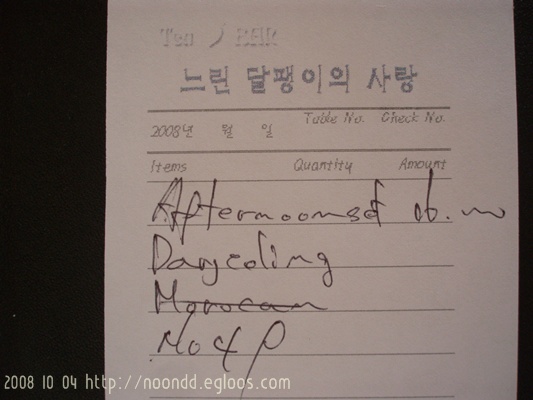 Tea / BAR
느린 달팽이의 사랑
Table No. Check No.
2008년 월 일
Items Quantity Amount
Afternoonset
Darjeeling
Morocan
No 4
2008 10 04 http://noondd.egloos.com